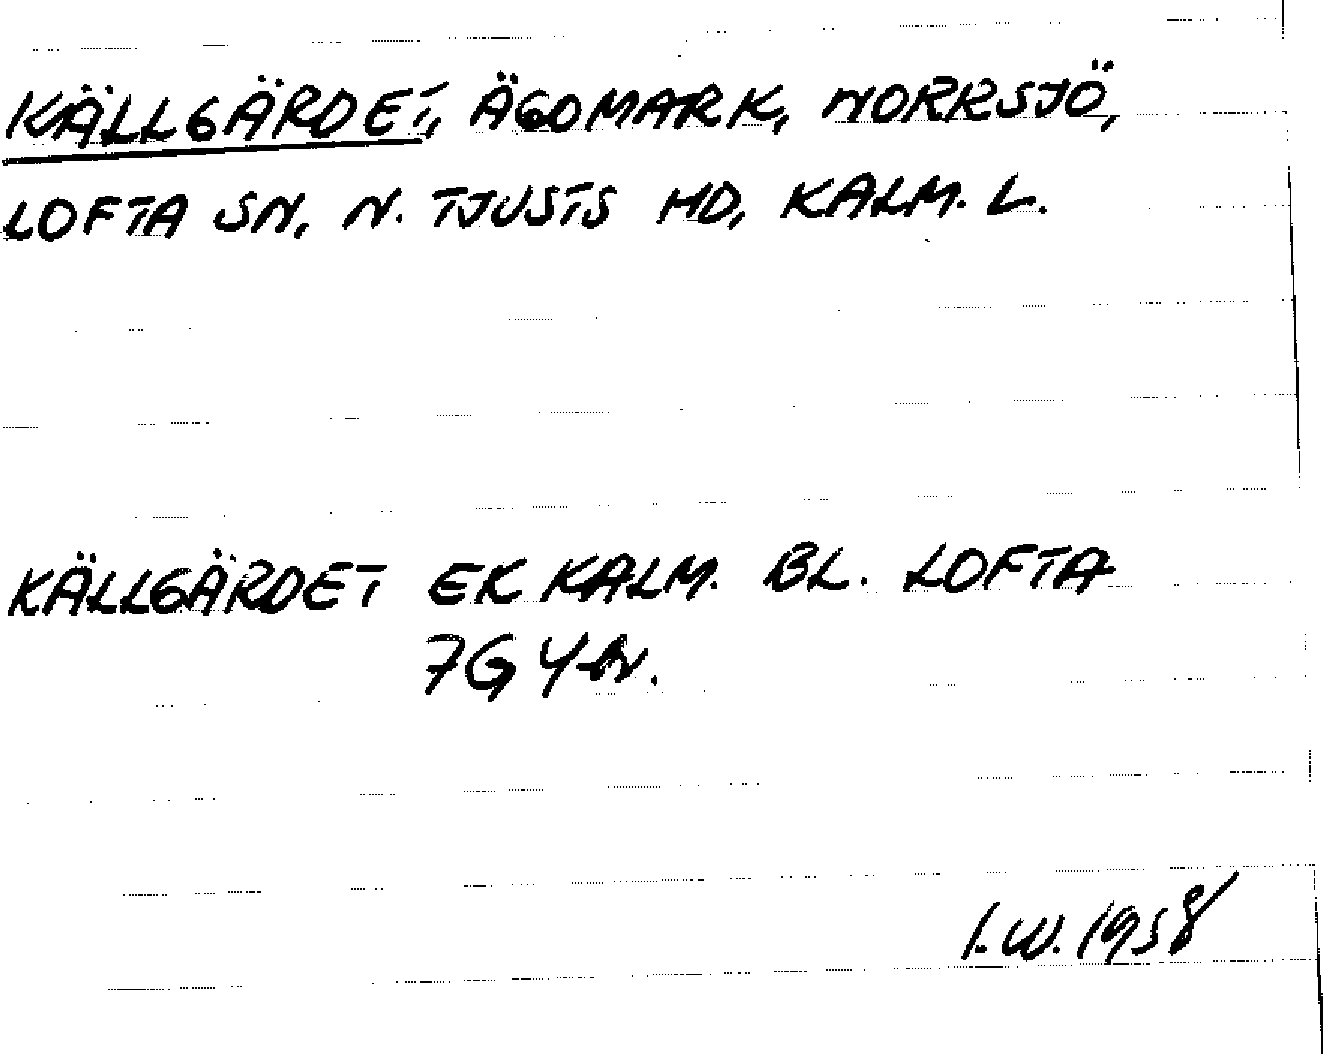 KÄLLGÄRDET, ÄGOMARK, NORRSJÖ,
LOFTA SN, N. TJUSTS HD, KALM. L.
KÄLLGÄRDET EK KALM. BL. LOFTA
7G 4 br.
I.W. 1958